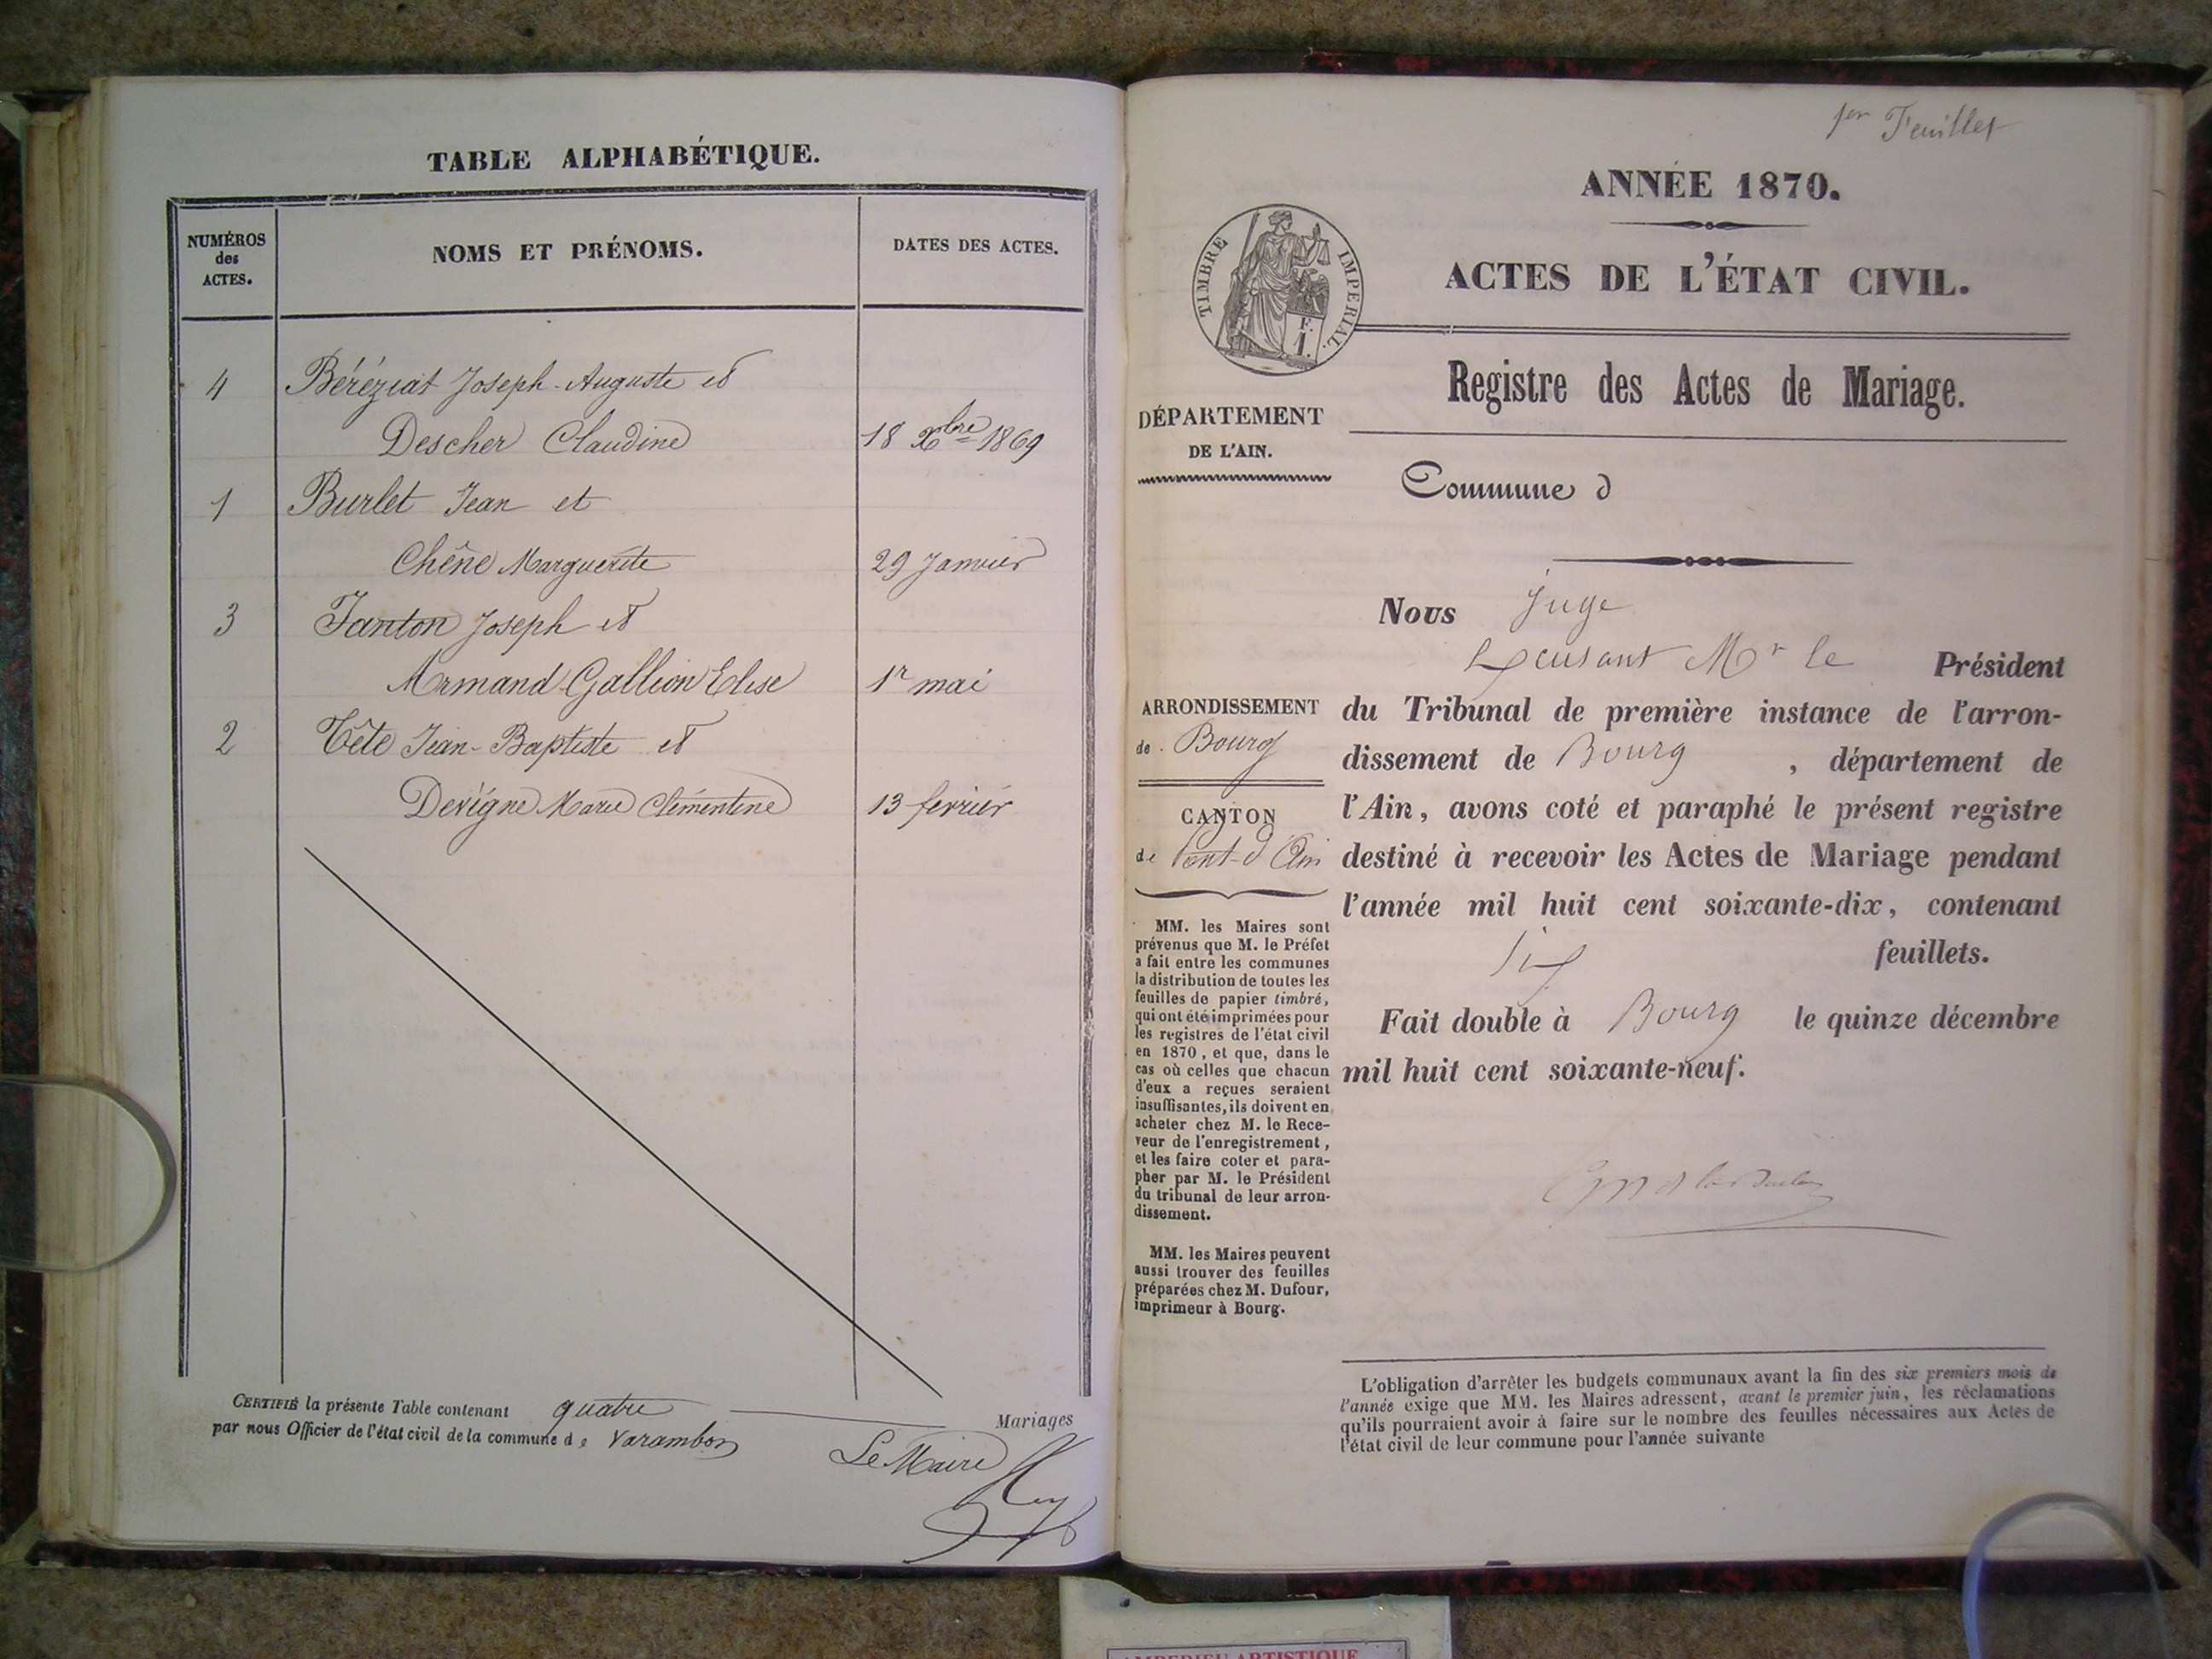 TABLE ALPHABÉTIQUE.
NUMÉROS
des
ACTES.
NOMS ET PRÉNOMS.
DATES DES ACTES.
4 Béréziat Joseph-Auguste et
Descher Claudine 18 Xbre 1869
1 Burlet Jean et
Chêne Marguerite 29 Janvier
3 Janton Joseph et
Armand-Gallion Elise 1r mai
2 Tête Jean-Baptiste et
Devigne Marie Clémentine 13 fevrier
CERTIFIÉ la présente Table contenant quatre Mariages
par nous Officier de l'état civil de la commune de Varambon
Le Maire
1er Feuillet
ANNÉE 1870.
ACTES DE L'ÉTAT CIVIL.
TIMBRE IMPÉRIAL.
F.
1.
Registre des Actes de Mariage.
DÉPARTEMENT
DE L'AIN.
Commune d
ARRONDISSEMENT
de Bourg
CANTON
de Pont-d'Ain
MM. les Maires sont
prévenus que M. le Préfet
a fait entre les communes
la distribution de toutes les
feuilles de papier timbré,
qui ont été imprimées pour
les registres de l'état civil
en 1870, et que, dans le
cas où celles que chacun
d'eux a reçues seraient
insuffisantes, ils doivent en
acheter chez M. le Rece-
veur de l'enregistrement,
et les faire coter et para-
pher par M. le Président
du tribunal de leur arron-
dissement.
MM. les Maires peuvent
aussi trouver des feuilles
préparées chez M. Dufour,
imprimeur à Bourg.
Nous Juge
Mr le Président
du Tribunal de première instance de l'arron-
dissement de Bourg, département de
l'Ain, avons coté et paraphé le présent registre
destiné à recevoir les Actes de Mariage pendant
l'année mil huit cent soixante-dix, contenant
six feuillets.
Fait double à Bourg le quinze décembre
mil huit cent soixante-neuf.
L'obligation d'arrêter les budgets communaux avant la fin des six premiers mois de
l'année exige que MM. les Maires adressent, avant le premier juin, les réclamations
qu'ils pourraient avoir à faire sur le nombre des feuilles nécessaires aux Actes de
l'état civil de leur commune pour l'année suivante